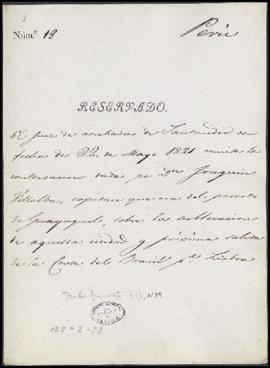 Perú
Núm.º 12.
RESERVADO.
El Juez de arribadas de Santander con
fecha del 22 de Mayo 1821 remite la
contestacion dada por Dn Joaquin
Villalba, capitan que era del puerto
de Guayaquil, sobre la sublevacion
de aquella ciudad y próxima salida
de la Corte del Brasil pª Lisboa.